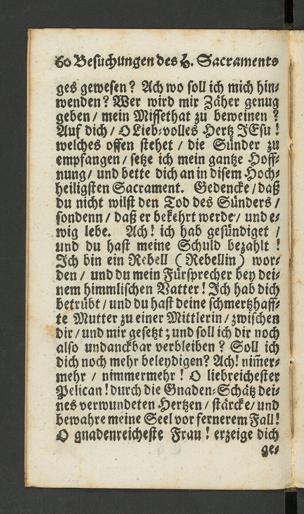 60 Besuchungen des H. Sacraments
ges gewesen? Ach wo soll ich mich hin-
wenden? Wer wird mir Zäher genug
geben / mein Missethat zu beweinen?
Auf dich / O Lieb-volles Hertz JEsu!
welches offen stehet / die Sünder zu
empfangen / setze ich mein gantze Hoff-
nung / und bette dich an in disem Hoch-
heiligsten Sacrament. Gedencke / daß
du nicht wilst den Tod des Sünders /
sondenn / daß er bekehrt werde / und e-
wig lebe. Ach! ich hab gesündiget /
und du hast meine Schuld bezahlt!
Ich bin ein Rebell (Rebellin) wor-
den / und du mein Fürsprecher bey dei-
nem himmlischen Vatter! Ich hab dich
betrübt / und du hast deine schmertzhaff-
te Mutter zu einer Mittlerin / zwischen
dir / und mir gesetzt; und soll ich dir noch
also undanckbar verbleiben? Soll ich
dich noch mehr beleydigen? Ach! nim̅er-
mehr / nimmermehr! O liebreichester
Pelican! durch die Gnaden-Schätz dei-
nes verwundeten Hertzen / stärcke / und
bewahre meine Seel vor fernerem Fall!
O gnadenreicheste Frau! erzeige dich
ge-